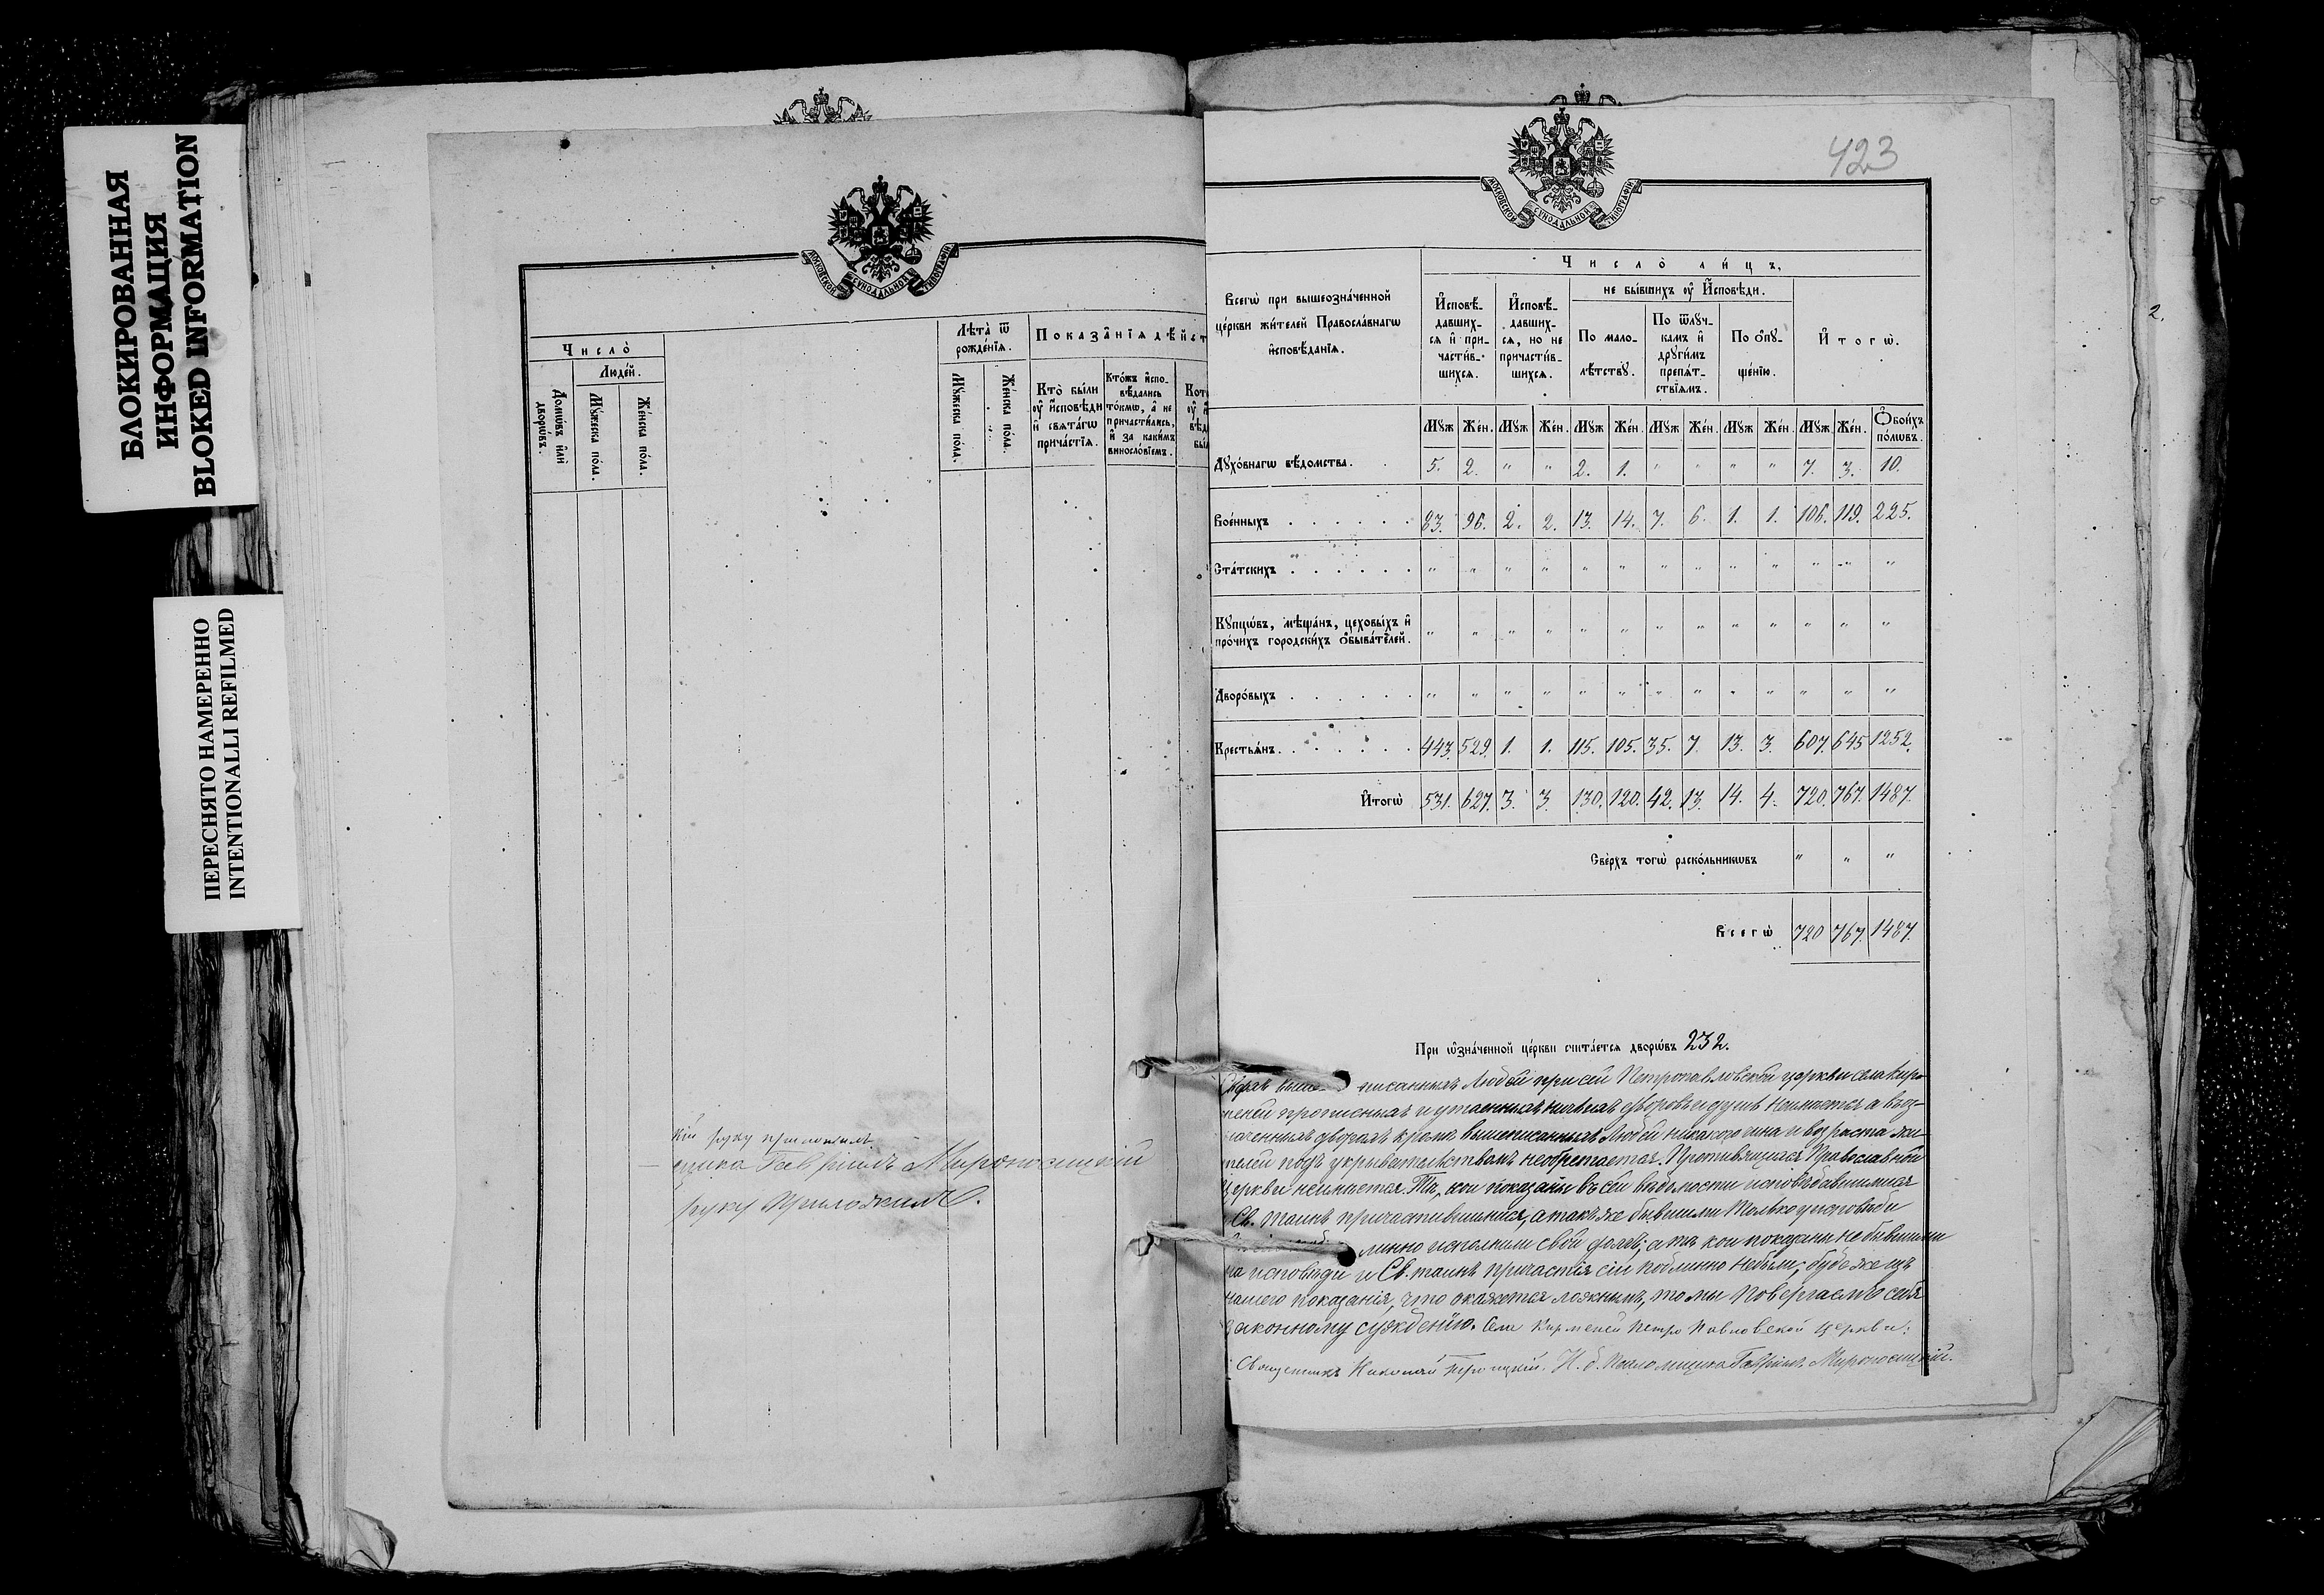 БЛОКИРОВАННАЯ
ИНФОРМАЦИЯ
BLOKED INFORMATION
ПЕРЕСНЯТО НАМЕРЕННО
INTENTIONALLI REFILMED
МОСКОВСКОЙ СѴНОДАЛЬНОЙ ТИПОГРАФІИ
Число̀
Люде́й.
Домѡ́въ и҆лѝ дворѡ́въ.
Мꙋ́жеска по́ла.
Же́нска по́ла.
Лѣ́та ѿ рожде́нїѧ.
Мꙋ́жеска по́ла.
Же́нска по́ла.
Показа̑нїѧ дѣ́йст
Кто̀ бы́ли ᲂу҆ и҆́сповѣди и҆ свѧта́гѡ прича́стїѧ.
Кто́жъ и҆спо-
вѣ́дались
то́кмѡ, а҆ не
причасти́лись,
и҆ за каки́мъ
винословїемъ.
кій руку приложилъ
щика Гавріилъ Мироносицкій
руку приложилъ.
423
МОСКОВСКОЙ СѴНОДАЛЬНОЙ ТИПОГРАФІИ
Всегѡ̀ при вышеозна́ченной
це́ркви жи́телей Правосла́внагѡ
и҆сповѣ́данїѧ.
Число̀ ли́цъ,
И҆сповѣ́-
давших-
сѧ и҆ при-
части́в-
шихсѧ.
И҆сповѣ́-
давших-
сѧ, но не
причасти́в-
шихсѧ.
не бы́вшихъ ᲂу҆ И҆́сповѣди.
По мало-
лѣ́тствꙋ.
По ѿлꙋ́ч-
камъ и҆
дрꙋги́мъ
препѧ́т-
ствїѧмъ.
По ѻ҆пꙋ-
ще́нїю.
И҆тогѡ̀.
Мꙋж Же́н. Мꙋж Же́н. Мꙋж Же́н. Мꙋж Же́н. Мꙋж Же́н. Мꙋж. Же́н. Ѻ҆бои́хъ по́лѡвъ.
Дꙋхо́внагѡ вѣ́домства. 5. 2. " " 2. 1. " " " " 7. 3. 10.
Вое́нныхъ 83. 96. 2. 2. 13. 14. 7. 6. 1. 1. 106. 119. 225.
Ста́тскихъ " " " " " " " " " " " " "
Кꙋпцѡ́въ, мѣща́нъ, цеховы́хъ и҆
про́чихъ городски́хъ ѻ҆быва́телей. " " " " " " " " " " " " "
Дворо́выхъ " " " " " " " " " " " " "
Крестьѧ́нъ 443. 529. 1. 1. 115. 105. 35. 7. 13. 3. 607. 645 1252.
И҆тогѡ̀ 531. 627. 3. 3. 130. 120. 42. 13. 14. 4. 720. 767. 1487.
Све́рхъ тогѡ̀ раско́льникѡвъ " " "
Всегѡ̀ 720 767. 1487.
При ѡ҆зна́ченной це́ркви счита́етсѧ дворѡ́въ 232.
писанныхъ Людей при сей Петропавловской церкви села Кир-
меней прописныхъ и утаенныхъ дворовъ и душъ неимѣется а въ оз-
наченныхъ дворахъ кромѣ вышеписанныхъ Людей никакого чина и возраста жи-
телей подъ укрывательствомъ необретается. Противящихся Православной
Церкви неимѣется. Тѣ, кои показаны въ сей вѣдомости исповѣдавшимися
Св. таинъ причастившимися, а такъ же бывшими только у исповѣди
линно исполнили свой долгъ; а тѣ кои показаны не бывшими
на исповѣди и Св. таинъ причастія сіи подлинно небыли; буде же изъ
нашего показанія, что окажется ложнымъ, то мы повергаемъ себя
законному сужденію. Села Кирменей Петро Павловской церкви:
Священникъ Николай Троицкій. И. д. Псаломщика Гавріилъ Мироносицкій.
2.